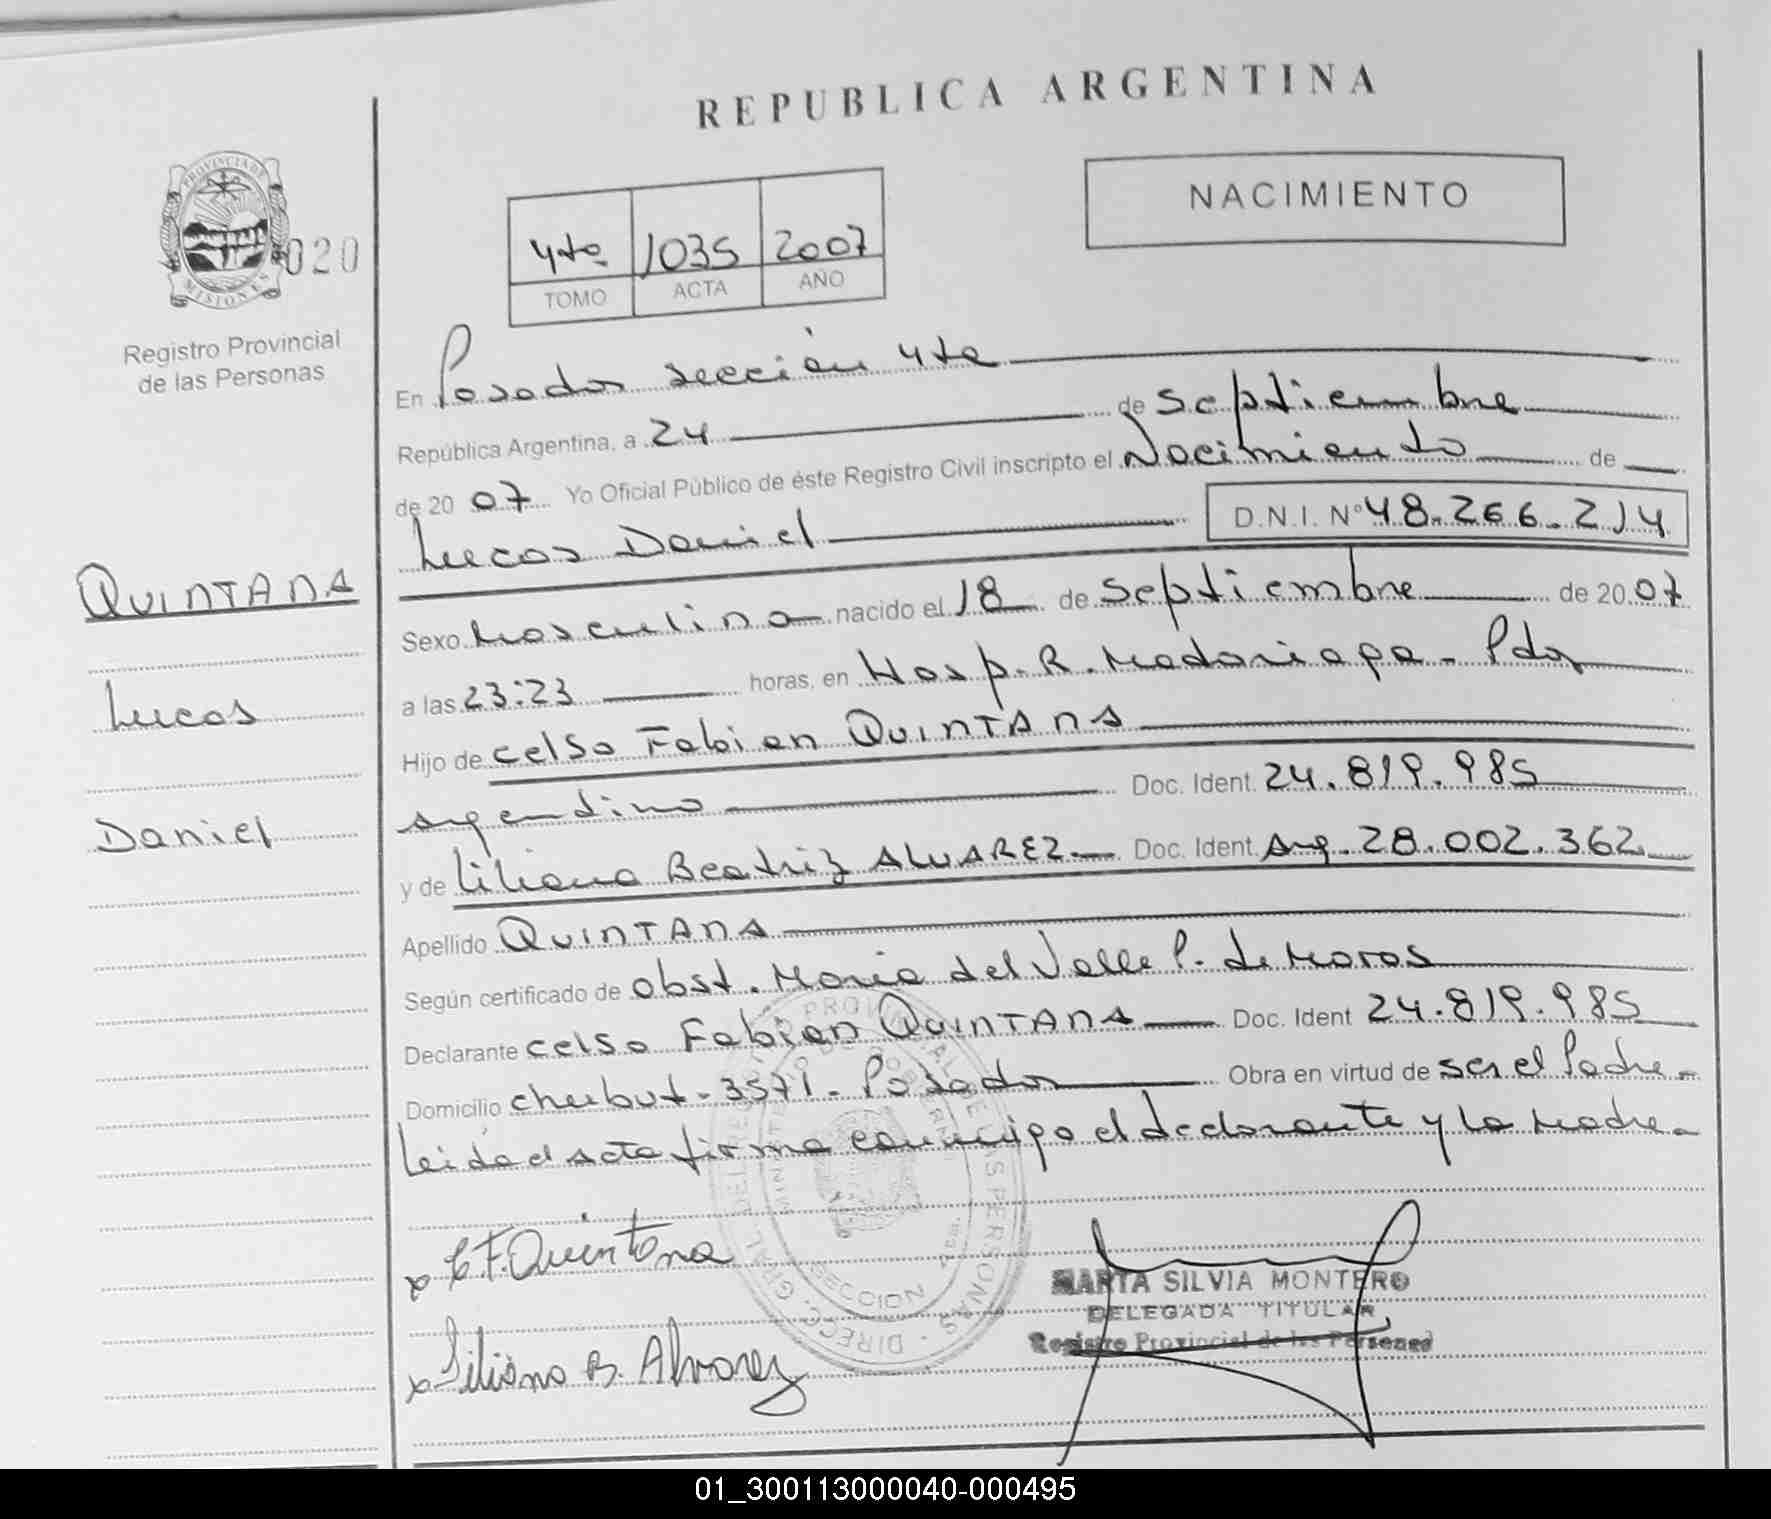 REPUBLICA ARGENTINA
PROVINCIA DE
MISIONES
020
Registro Provincial
de las Personas
4to 1035 2007
TOMO ACTA AÑO
NACIMIENTO
En Posadas sección 4ta
República Argentina, a 24 de septiembre
de 20 07 Yo Oficial Público de éste Registro Civil inscripto el Nacimiento de
Lucas Daniel D.N.I. Nº 48.266.214
QUINTANA
Lucas
Daniel
Sexo Masculino nacido el 18 de septiembre de 20 07
a las 23:23 horas, en Hosp. R. Madariaga - Pdas
Hijo de Celso Fabian QUINTANA
argentino Doc. Ident. 24.819.985
y de Liliana Beatriz ALVAREZ Doc. Ident. Arg. 28.002.362
Apellido QUINTANA
Según certificado de obst. Maria del Valle P. de Moros
Declarante Celso Fabian QUINTANA Doc. Ident 24.819.985
Domicilio chubut - 3571 - Posadas Obra en virtud de ser el Padre -
Leida el acta firma conmigo el declarante y la Madre -
x C.F. Quintana
x Liliana B. Alvarez
MARTA SILVIA MONTERO
DELEGADA TITULAR
Registro Provincial de las Personas
01_300113000040-000495